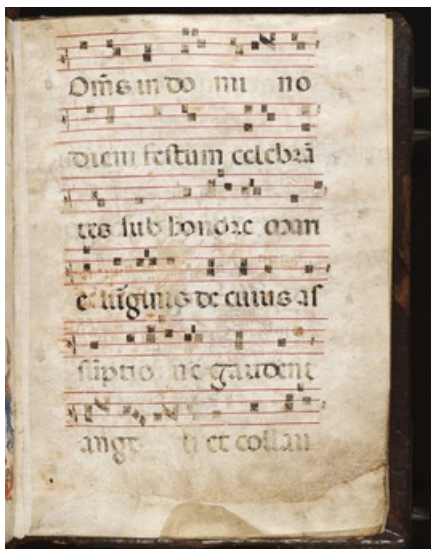 Om̃s in do mi no
diem festum celebrã
tes sub honore mari
e uirginis de cuius as
sũptio ne gaudent
ange li et collau